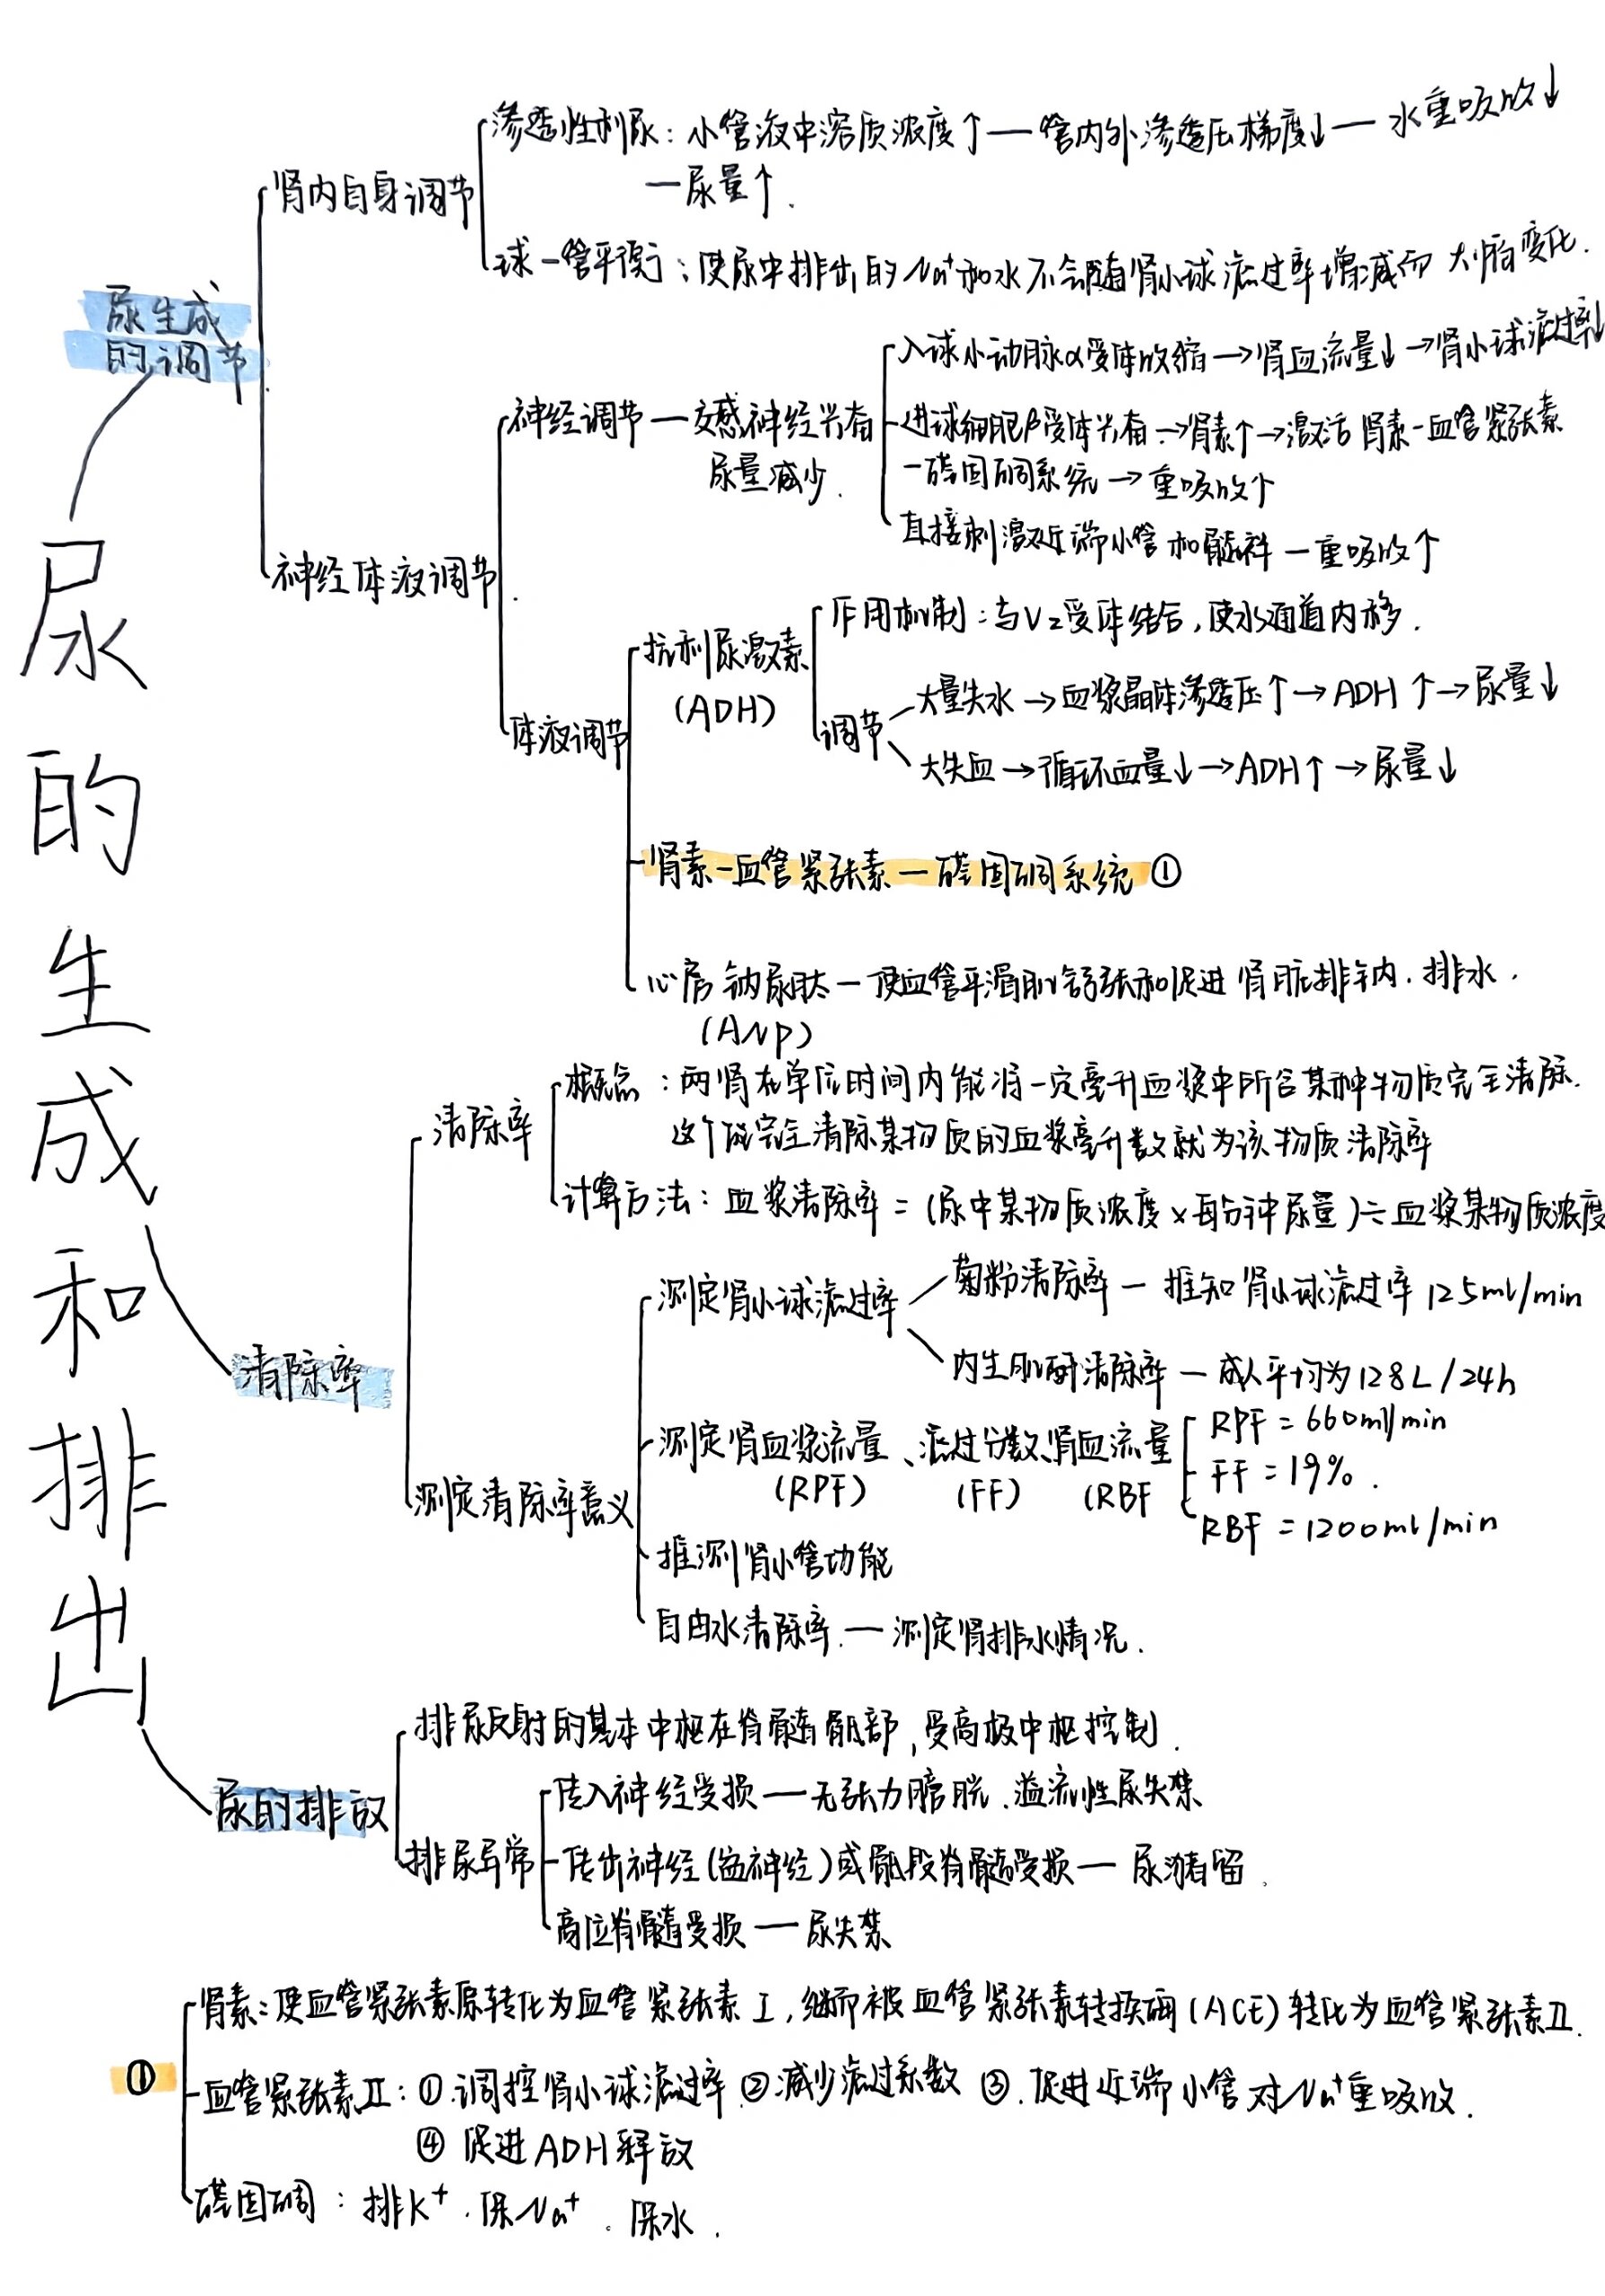 尿的生成和排出
尿生成
的调节
肾内自身调节
渗透性利尿：小管液中溶质浓度↑—管内外渗透压梯度↓—水重吸收↓
—尿量↑.
球-管平衡：使尿中排出的Na⁺和水不会随肾小球滤过率增减而大幅变化.
神经体液调节.
神经调节—交感神经兴奋
尿量减少.
入球小动脉α受体收缩→肾血流量↓→肾小球滤过率↓
近球细胞β受体兴奋→肾素↑→激活肾素-血管紧张素
-醛固酮系统→重吸收↑
直接刺激近端小管和髓袢—重吸收↑
体液调节
抗利尿激素
(ADH)
作用机制：与V₂受体结合,使水通道内移.
调节
大量失水→血浆晶体渗透压↑→ADH↑→尿量↓
大失血→循环血量↓→ADH↑→尿量↓
肾素-血管紧张素-醛固酮系统①
心房钠尿肽—使血管平滑肌舒张和促进肾脏排钠.排水.
(ANP)
清除率
清除率
概念：两肾在单位时间内能将一定毫升血浆中所含某种物质完全清除.
这个被完全清除某物质的血浆毫升数就为该物质清除率
计算方法：血浆清除率=(尿中某物质浓度×每分钟尿量)÷血浆某物质浓度
测定清除率意义
测定肾小球滤过率
菊粉清除率—推知肾小球滤过率125ml/min
内生肌酐清除率—成人平均为128L/24h
测定肾血浆流量、滤过分数、肾血流量
(RPF) (FF) (RBF
RPF=660ml/min
FF=19%.
RBF=1200ml/min
推测肾小管功能
自由水清除率.—测定肾排水情况.
尿的排放
排尿反射的基本中枢在脊髓骶部,受高级中枢控制.
排尿异常
传入神经受损—无张力膀胱.溢流性尿失禁
传出神经(盆神经)或骶段脊髓受损—尿潴留.
高位脊髓受损—尿失禁
①
肾素：使血管紧张素原转化为血管紧张素I,继而被血管紧张素转换酶(ACE)转化为血管紧张素II.
血管紧张素II：①.调控肾小球滤过率②减少滤过系数③.促进近端小管对Na⁺重吸收.
④促进ADH释放
醛固酮：排K⁺.保Na⁺.保水.